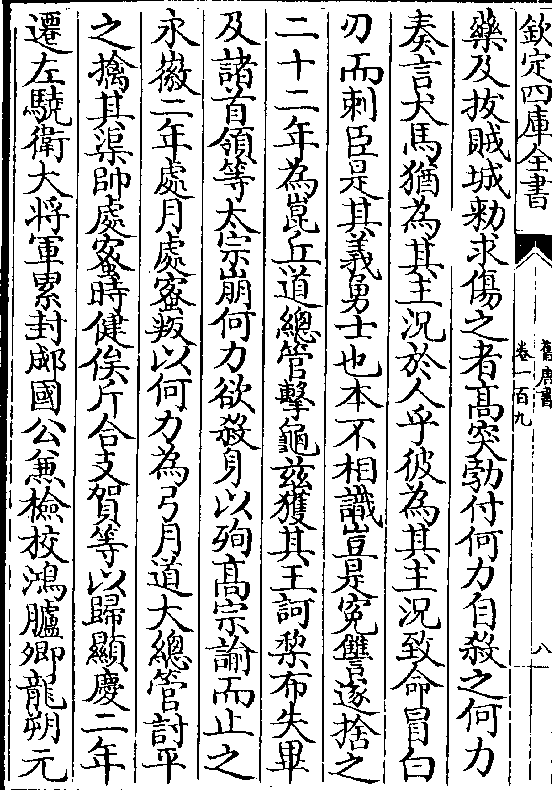 欽定四庫全書
舊唐書
卷一百九
八
藥及拔賊城勑求傷之者髙突勃付何力自殺之何力
奏言犬馬猶為其主況於人乎彼為其主況致命冒白
刃而刺臣是其義勇士也本不相識豈是寃讐遂捨之
二十二年為崑丘道總管擊龜兹獲其王訶黎布失畢
及諸首領等太宗崩何力欲殺身以殉髙宗諭而止之
永徽二年處月處宻叛以何力為弓月道大總管討平
之擒其渠帥處蜜時健俟斤合支賀等以歸顯慶二年
遷左驍衛大将軍累封郕國公兼檢校鴻臚卿龍朔元